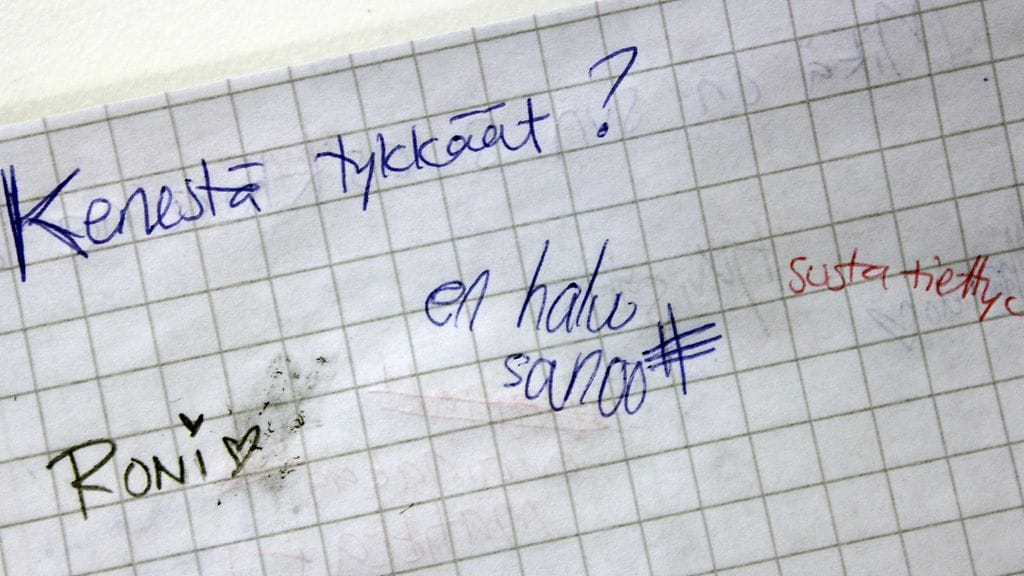 Kenestä tykkäät?
en halu
sanoo
susta tiettyc
RONI